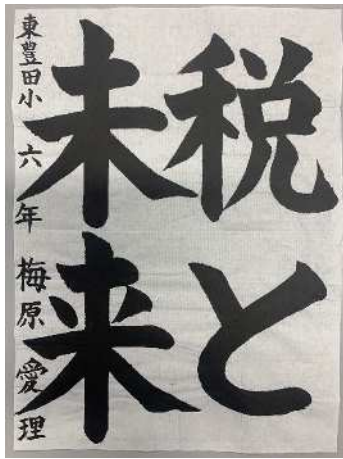 税と
未来
東豊田小 六年 梅原愛理